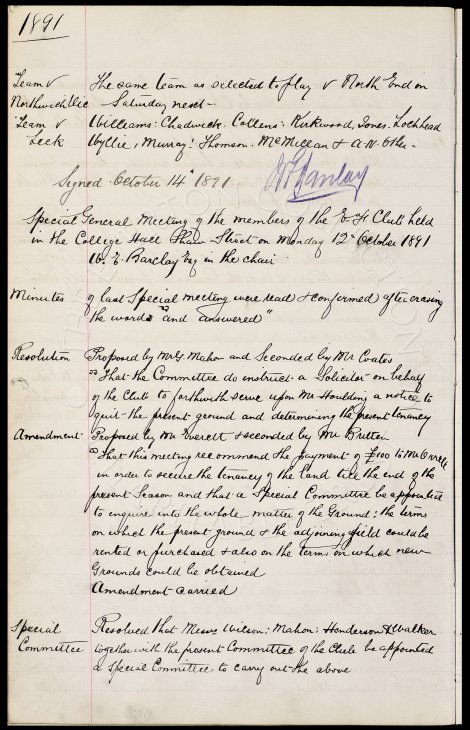 1891
Team v The same team as selected to play v North End on
Northwich Vic Saturday next
Team v Williams: Chadwick. Collins: Kirkwood. Jones. Lochhead
Leek Wyllie, Murray: Thomson. McMillan & A.N. Other
Signed October 14th 1891
Special General Meeting of the members of the E F Club held
in the College Hall Shaw Street on Monday 12th October 1891
W. E. Barclay Esq in the chair
Minutes of last Special meeting were read & confirmed after erasing
the words "and answered"
Resolution Proposed by Mr G. Mahon and Seconded by Mr Coates
"That the Committee do instruct a Solicitor on behalf
of the Club to forthwith serve upon Mr Houlding a notice to
quit the present ground and determining the present tenancy
Amendment Proposed by Mr Everett & seconded by Mr Butter
"That this meeting recommend the payment of £100 to Mr Orrell
in order to secure the tenancy of the land till the end of the
present Season and that a Special Committee be appointed
to enquire into the whole matter of the Ground: the terms
on which the present ground & the adjoining field could be
rented or purchased & also on the terms on which new
Grounds could be obtained
Amendment carried
Special Resolved that Messrs Wilson: Mahon: Henderson & Walker
Committee together with the present Committee of the Club be appointed
a Special Committee to carry out the above